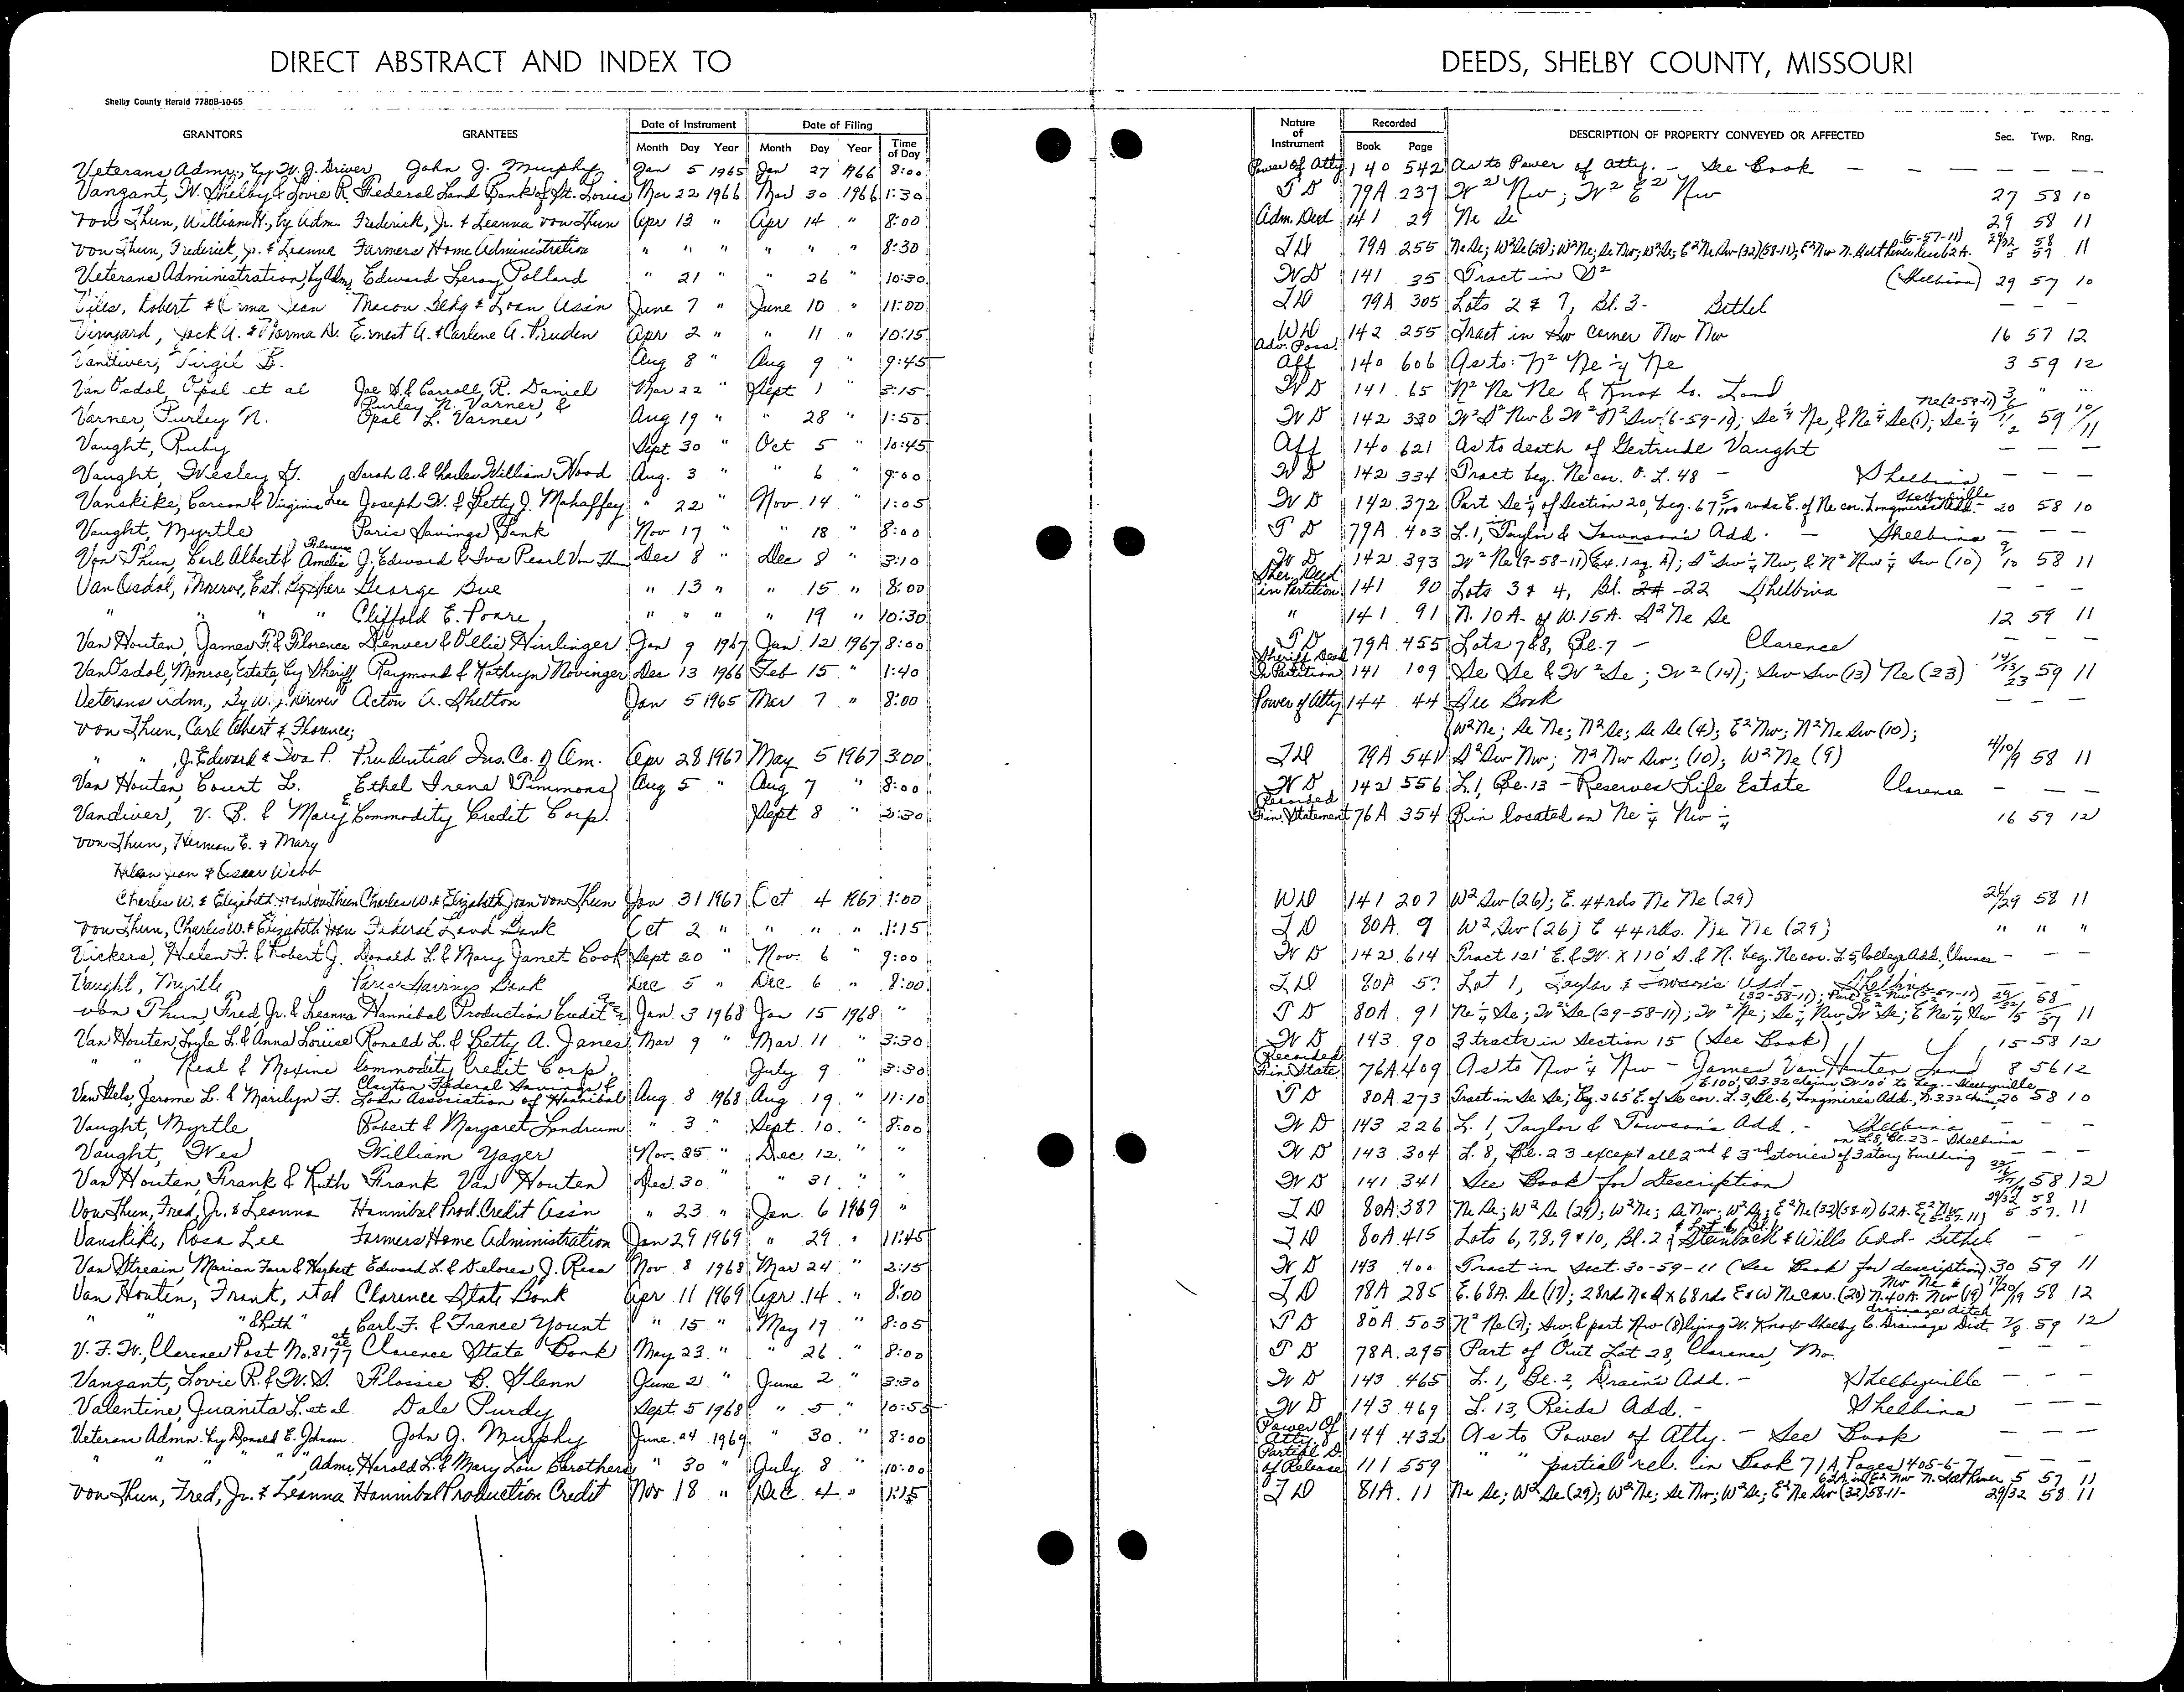 DIRECT ABSTRACT AND INDEX TO DEEDS, SHELBY COUNTY, MISSOURI
Shelby County Herald 7780B-10-65
GRANTORS GRANTEES Date of Instrument Date of Filing Nature of Instrument Recorded DESCRIPTION OF PROPERTY CONVEYED OR AFFECTED Sec. Twp. Rng.
Month Day Year Month Day Year Time of Day Book Page
Veterans Admn., by W. J. Driver John J. Murphy Jan 5 1965 Jan 27 1966 8:00 Power Of Atty. 140 542 As to Power of Atty. - See Book — — — — —
Vanzant, W. Shelby & Lovie R. Federal Land Bank of St. Louis Mar 22 1966 Mar 30 1966 1:30 T D 79A 237 W² Nw; W² E² Nw 27 58 10
von Thun, William H., by Adm. Frederick, Jr. & Leanna von Thun Apr 13 " Apr 14 " 8:00 Adm. Deed 141 29 Ne Se 29 58 11
von Thun, Frederick, Jr. & Leanna Farmers Home Administration " " " " " " 8:30 T D 79A 255 Ne Se; W² Se (29); W² Ne; Se Nw; W² Se; E² Ne Sw (32)(58-11); E² Nw N. Salt River less 62A. (5-57-11) 29/32 58 5 57 11
Veterans Administration, by Adm. Edward Leroy Pollard " 21 " " 26 " 10:30 W D 141 35 Tract in S² (Shelbina) 29 57 10
Robert & Erma Jean Macon Bldg & Loan Ass'n June 7 " June 10 " 11:00 T D 79A 305 Lots 2 & 7, Bl. 3- Bethel — — —
Vinyard, Jack A. & Norma D. Ernest A. & Carlene A. Pruden Apr 2 " " 11 " 10:15 W D 142 255 Tract in Sw corner Nw Nw 16 57 12
Vandiver, Virgil B. Aug 8 " Aug 9 " 9:45 Adv. Poss. Aff 140 606 As to: N² Ne ¼ Ne 3 59 12
Van Osdol, Opal et al Joe H. & Carroll R. Daniel Mar 22 " Sept 1 " 3:15 W D 141 65 N² Ne Ne & Knox Co. Land " " "
Varner, Purley N. Purley N. Varner & Opal L. Varner Aug 19 " " 28 " 1:55 W D 142 330 W² S² Nw & W² N² Sw (6-59-11); Se ¼ Ne, & Ne ¼ Se (1); Se ¼ Ne (2-59-11) 59 10/11
Vaught, Ruby Sept 30 " Oct 5 " 10:45 Aff 140 621 As to death of Gertrude Vaught — — —
Vaught, Wesley G. Sarah A. & Charles William Wood Aug. 3 " " 6 " 9:00 W D 142 334 Tract beg. Ne cor. O. L. 48 - Shelbina — —
Vanskike, Carson & Virginia Lee Joseph W. & Betty J. Mahaffey " 22 " Nov 14 " 1:05 W D 142 372 Part Se ¼ of Section 20, beg. 67 5/100 rods E. of Ne cor. Longmires Add. - Shelbyville 20 58 10
Vaught, Myrtle Paris Savings Bank Nov 17 " " 18 " 8:00 T D 79A 403 L. 1, Taylor & Towson's Add. - Shelbina — —
Von Thun, Carl Albert & Florence Amelia J. Edward & Iva Pearl Von Thun Dec 8 " Dec 8 " 3:10 W D 142 393 W² Ne (9-58-11)(Ex. 1 sq. A); S² Sw ¼ Nw, & N² Nw ¼ Sw (10) 9/10 58 11
Van Osdol, Monroe, Est. By Sher. George Bue " 13 " " 15 " 8:00 Sher. Deed in Partition 141 90 Lots 3 & 4, Bl. -22 Shelbina — — —
" " " " Clifford E. Poore " " " " 19 " 10:30 " 141 91 N. 10A. of W. 15A. S² Ne Se 12 59 11
Van Houten, James F. & Florence Denver & Ollie Hirlinger Jan 9 1967 Jan 12 1967 8:00 T D 79A 455 Lots 7&8, Bl. 7 - Clarence — — —
Van Osdol, Monroe, Estate, by Sheriff Raymond & Kathryn Novinger Dec 13 1966 Feb 15 " 1:40 Sheriff Deed In Partition 141 109 Se Se & W² Se; W² (14); Sw Sw (13) Ne (23) 14/13/23 59 11
Veterans Adm., By W. J. Driver Acton A. Shelton Jan 5 1965 Mar 7 " 8:00 Power of Atty 144 44 See Book — — —
von Thun, Carl Albert & Florence; W² Ne; Se Ne; N² Se; Se Se (4); E² Nw; N² Ne Sw (10);
" " J. Edward & Iva P. Prudential Ins. Co. of Am. Apr 28 1967 May 5 1967 3:00 T D 79A 541 S² Sw Nw; N² Nw Sw; (10); W² Ne (9) 4/10/9 58 11
Van Houten, Court L. Ethel Irene Timmons Aug 5 " Aug 7 " 8:00 W D 142 556 L. 1, Bl. 13 - Reserves Life Estate Clarence — — —
Vandiver, V. B. & Mary E. Commodity Credit Corp. Sept 8 " 3:30 Recorded Bin Statement 76A 354 Bin located on Ne ¼ Nw ¼ 16 59 12
von Thun, Herman E. & Mary
Helen Jean & Oscar Webb
Charles W. & Elizabeth Jean von Thun Charles W. & Elizabeth Jean von Thun Jan 31 1967 Oct 4 1967 1:00 W D 141 207 W² Sw (26); E. 44 rds Ne Ne (29) 26/29 58 11
von Thun, Charles W. & Elizabeth Jean Federal Land Bank Oct 2 " " " " 1:15 T D 80A 9 W² Sw (26) E 44 rds. Ne Ne (29) " " "
Vickers, Helen F. & Robert J. Donald L. & Mary Janet Cook Sept 20 " Nov. 6 " 9:00 W D 142 614 Tract 121' E. & W. X 110' S. & N. beg. Ne cor. L. 5, College Add., Clarence - — —
Vaught, Myrtle Paris Savings Bank Dec 5 " Dec. 6 " 8:00 T D 80A Lot 1, Taylor & Towson's Add - Shelbina — — —
von Thun, Fred, Jr. & Leanna Hannibal Production Credit Jan 3 1968 Jan 15 1968 " T D 80A 91 Ne ¼ Se; W² Se (29-58-11); W² Ne; Se ¼ Nw, W² Se; E Ne ¼ Sw (32-58-11); Part E² Nw (5-57-11) 29/32 58 5 57 11
Van Houten, Lyle L. & Anna Louise Ronald L. & Betty A. Janes Mar 9 " Mar. 11 " 3:30 W D 143 90 3 tracts in Section 15 (See Book) 15 58 12
" " Neal & Maxine Commodity Credit Corp. July 9 " 3:30 Recorded Bin State. 76A 409 As to Nw ¼ Nw - James Van Houten Land 8 56 12
Van Hele, Jerome L. & Marilyn F. Clayton Federal Savings & Loan Association of Hannibal Aug. 8 1968 Aug 19 " 11:10 T D 80A 273 Tract in Se Se; Beg. 265' E. of Se cor. L. 3, Bl. 6, Longmires Add., N. 3.32 chains, E. 100', S. 3.32 chains, W. 100' to beg. - Shelbyville 20 58 10
Vaught, Myrtle Robert & Margaret Landrum " 3 " Sept. 10. " 8:00 W D 143 226 L. 1, Taylor & Towson's Add. - Shelbina — — —
Vaught, Wes William Yager Nov. 25 " Dec. 12. " " W D 143 304 L. 8, Bl. 23 except all 2nd & 3rd stories of 3 story building on L. 8, Bl. 23 - Shelbina — —
Van Houten, Frank & Ruth Frank Van Houten Dec. 30 " " 31. " " W D 141 341 See Book for Description 58 12
Von Thun, Fred, Jr. & Leanna Hannibal Prod. Credit Ass'n " 23 " Jan. 6 1969 " T D 80A 387 Ne Se; W² Se (29); W² Ne; Se Nw; W² Se; E² Ne (32)(58-11) 62A. E² Nw (5-57-11) 29/32 58 5 57. 11
Vanskike, Rosa Lee Farmers Home Administration Jan 29 1969 " 29 " 11:45 T D 80A 415 Lots 6, 7, 8, 9 & 10, Bl. 2 & Lot 6, Bl. 1 Steinbach & Wills Add- Bethel — —
Van Streain, Marian Farr & Herbert Edward L. & Delores J. Resa Nov. 8 1968 Mar. 24 " 2:15 W D 143 400 Tract in Sect. 30-59-11 (See Book for description) 30 59 11
Van Houten, Frank, et al Clarence State Bank Apr 11 1969 Apr. 14. " 8:00 T D 78A 285 E. 68A. Se (17); 28 rds N & S x 68 rds E & W Ne cor. (20) Nw Ne & N. 40A. Nw (19) 17/20/19 58 12
" " " & Ruth" Carl F. & France Yount " 15 " May. 19 " 8:05 T D 80A 503 N² Ne (7); Sw. & part Nw (8) lying W. Knox-Shelby Co. Drainage Dist. drainage ditch 7/8 59 12
V. F. W., Clarence Post No. 8177 et al Clarence State Bank May 23. " " 26 " 8:00 T D 78A. 295 Part of Out Lot 28, Clarence, Mo. — — —
Vanzant, Lovie R. & W. S. Flossie B. Glenn June 2 " June 2 " 3:30 W D 143 465 L. 1, Bl. 2, Drain's Add. - Shelbyville — — —
Valentine, Juanita L. et al Dale Purdy Sept. 5 1968 " 5 " 10:55 W D 143 469 L. 13, Reids Add. - Shelbina — — —
Veterans Admn. by Donald E. Johnson John J. Murphy June. 24 1969 " 30. " 8:00 Power Of Atty. 144 432 As to Power of Atty. - See Book — — —
" " " " Adm. Harold L. & Mary Lou Carothers " 30 " July. 8. " 10:00 Partial D. of Release 111 559 " " partial rel. in Book 71A, Pages 405-6-7 — — —
von Thun, Fred, Jr. & Leanna Hannibal Production Credit Nov 18 " Dec. 4 " 1:15 T D 81A. 11 Ne Se; W² Se (29); W² Ne; Se Nw; W² Se; E² Ne Sw (32) 58-11- 62A in E² Nw N. Salt River 5 57 11 29/32 58 11